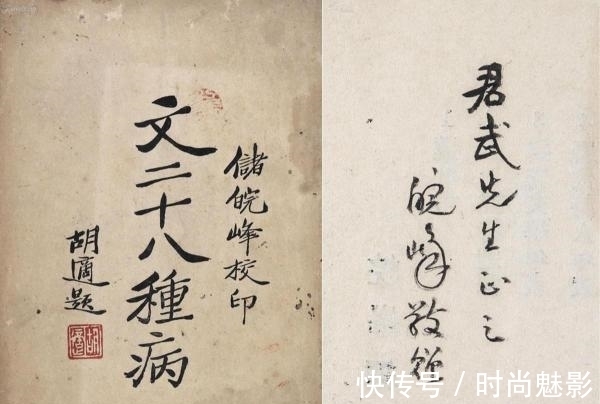 儲皖峰校印
文二十八種病
胡適題
胡適
君武先生正之
皖峰敬贈
快传号/时尚魅影